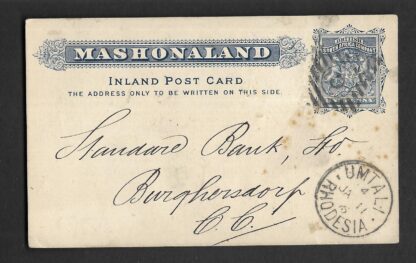 MASHONALAND
INLAND POST CARD
THE ADDRESS ONLY TO BE WRITTEN ON THIS SIDE.
Standard Bank, Ho
Burghersdorp
C.C.
UMTALI
RHODESIA